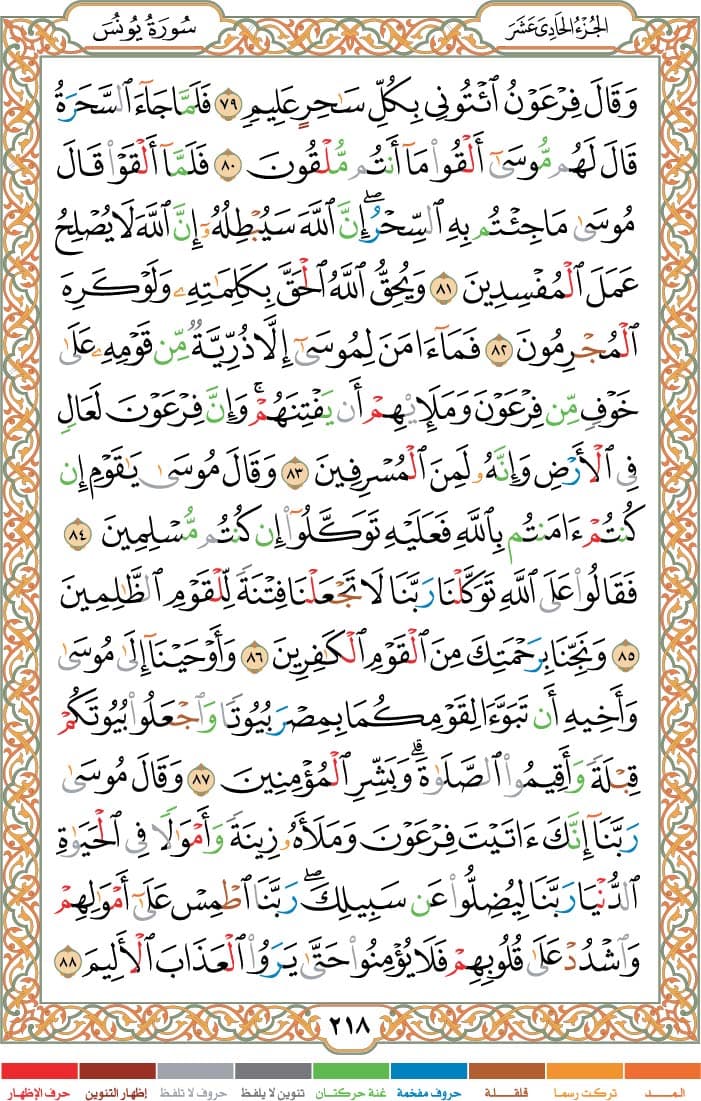 الجُزْءُ الحَادِى عَشَرَ
سُورَةُ يُونُسَ
وَقَالَ فِرْعَوْنُ ٱئْتُونِى بِكُلِّ سَٰحِرٍ عَلِيمٍ ٧٩ فَلَمَّا جَآءَ ٱلسَّحَرَةُ
قَالَ لَهُم مُّوسَىٰٓ أَلْقُوا۟ مَآ أَنتُم مُّلْقُونَ ٨٠ فَلَمَّآ أَلْقَوْا۟ قَالَ
مُوسَىٰ مَا جِئْتُم بِهِ ٱلسِّحْرُ ۖ إِنَّ ٱللَّهَ سَيُبْطِلُهُۥٓ إِنَّ ٱللَّهَ لَا يُصْلِحُ
عَمَلَ ٱلْمُفْسِدِينَ ٨١ وَيُحِقُّ ٱللَّهُ ٱلْحَقَّ بِكَلِمَٰتِهِۦ وَلَوْ كَرِهَ
ٱلْمُجْرِمُونَ ٨٢ فَمَآ ءَامَنَ لِمُوسَىٰٓ إِلَّا ذُرِّيَّةٌ مِّن قَوْمِهِۦ عَلَىٰ
خَوْفٍ مِّن فِرْعَوْنَ وَمَلَإِي۟هِمْ أَن يَفْتِنَهُمْ ۚ وَإِنَّ فِرْعَوْنَ لَعَالٍ
فِى ٱلْأَرْضِ وَإِنَّهُۥ لَمِنَ ٱلْمُسْرِفِينَ ٨٣ وَقَالَ مُوسَىٰ يَٰقَوْمِ إِن
كُنتُمْ ءَامَنتُم بِٱللَّهِ فَعَلَيْهِ تَوَكَّلُوٓا۟ إِن كُنتُم مُّسْلِمِينَ ٨٤
فَقَالُوا۟ عَلَى ٱللَّهِ تَوَكَّلْنَا رَبَّنَا لَا تَجْعَلْنَا فِتْنَةً لِّلْقَوْمِ ٱلظَّٰلِمِينَ
٨٥ وَنَجِّنَا بِرَحْمَتِكَ مِنَ ٱلْقَوْمِ ٱلْكَٰفِرِينَ ٨٦ وَأَوْحَيْنَآ إِلَىٰ مُوسَىٰ
وَأَخِيهِ أَن تَبَوَّءَا لِقَوْمِكُمَا بِمِصْرَ بُيُوتًا وَٱجْعَلُوا۟ بُيُوتَكُمْ
قِبْلَةً وَأَقِيمُوا۟ ٱلصَّلَوٰةَ ۗ وَبَشِّرِ ٱلْمُؤْمِنِينَ ٨٧ وَقَالَ مُوسَىٰ
رَبَّنَآ إِنَّكَ ءَاتَيْتَ فِرْعَوْنَ وَمَلَأَهُۥ زِينَةً وَأَمْوَٰلًا فِى ٱلْحَيَوٰةِ
ٱلدُّنْيَا رَبَّنَا لِيُضِلُّوا۟ عَن سَبِيلِكَ ۖ رَبَّنَا ٱطْمِسْ عَلَىٰٓ أَمْوَٰلِهِمْ
وَٱشْدُدْ عَلَىٰ قُلُوبِهِمْ فَلَا يُؤْمِنُوا۟ حَتَّىٰ يَرَوُا۟ ٱلْعَذَابَ ٱلْأَلِيمَ ٨٨
٢١٨
المـــد تركت رسما قلقـــلة حروف مفخمة غنة حركتـــان تنوين لا يلفظ حروف لا تلفظ إظهار التنوين حرف الإظهار